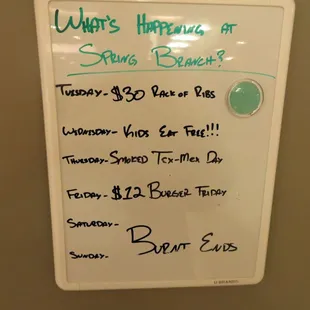 What's Happening at
Spring Branch?
Tuesday- $30 Rack of Ribs
Wednesday- Kids Eat Free!!!
Thursday- Smoked Tex-Mex Day
Friday- $12 Burger Friday
Saturday-
Burnt Ends
Sunday-